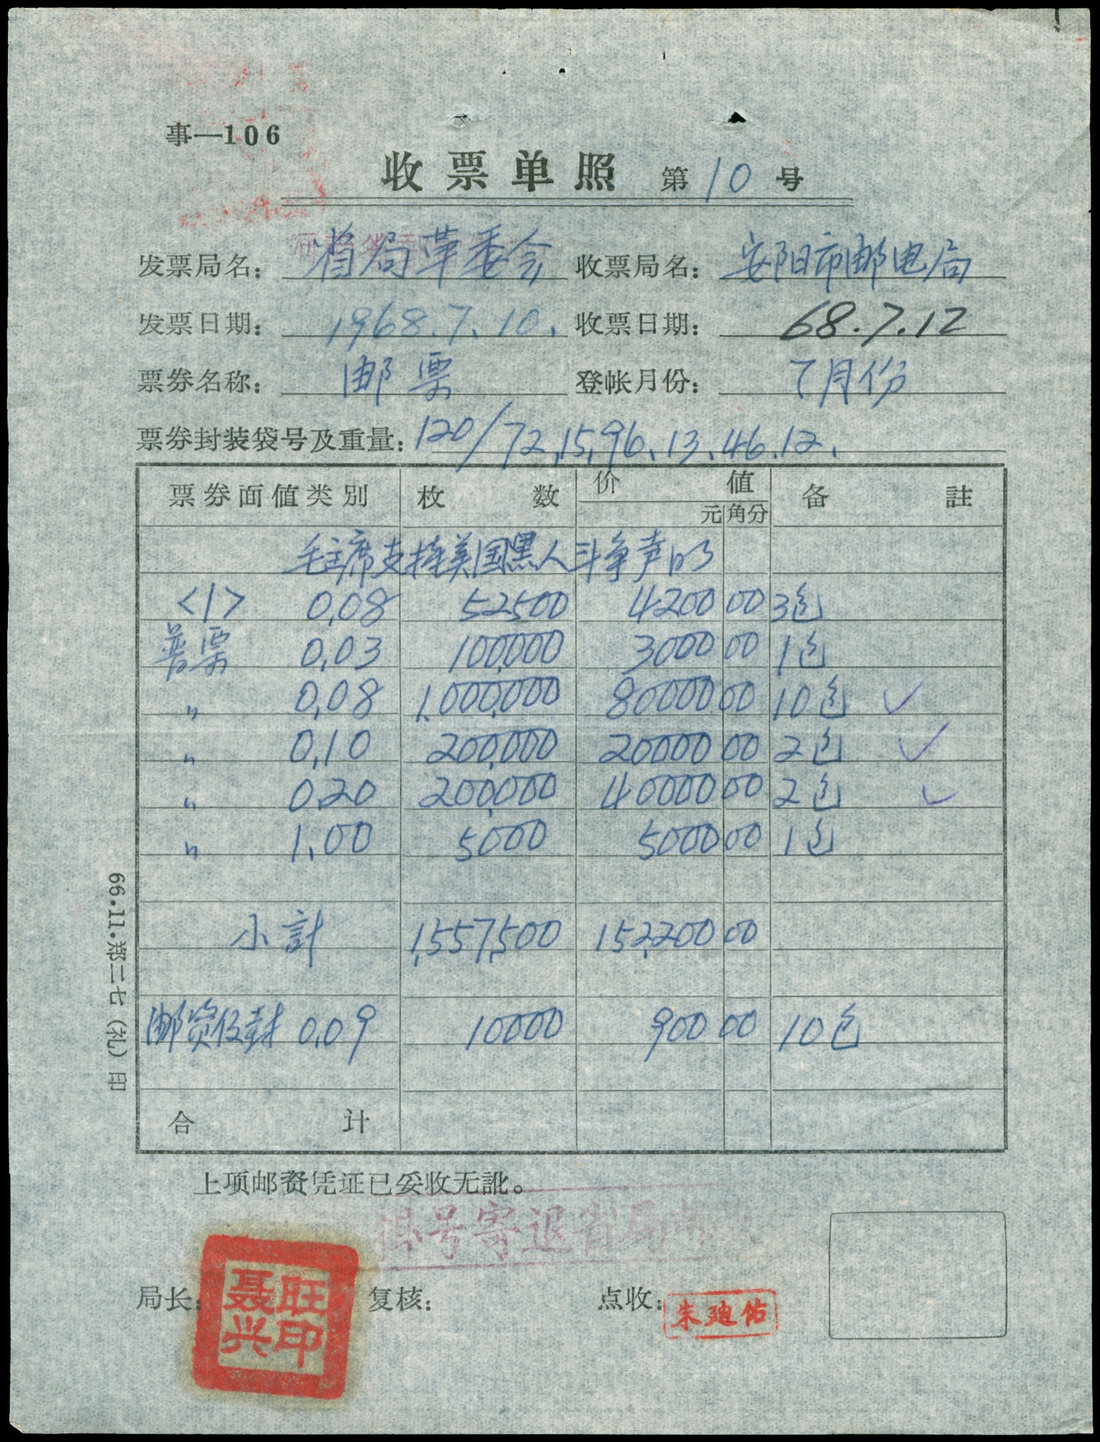 事—106
收票单照 第10号
发票局名：省局革委会 收票局名：安阳市邮电局
发票日期：1968.7.10. 收票日期：68.7.12
票券名称：邮票 登帐月份：7月份
票券封装袋号及重量：120/72,15,96.13.46.12.
票券面值类别 枚数 价值 备註
元 角分
毛主席支持美国黑人斗争声明
<1> 0.08 52500 4200 00 3包
普票 0.03 100,000 3000 00 1包
〃 0.08 1,000,000 80000 00 10包 ✓
〃 0.10 200,000 20000 00 2包 ✓
〃 0.20 200,000 40000 00 2包 ✓
〃 1.00 5000 5000 00 1包
小計 1,557,500 152,200 00
邮资信封 0.09 10000 900 00 10包
合计
66.11.郑二七（礼）印
上项邮资凭证已妥收无訛。
挂号寄退省局
局长： 复核： 点收：
聂兴旺印
朱迪佑